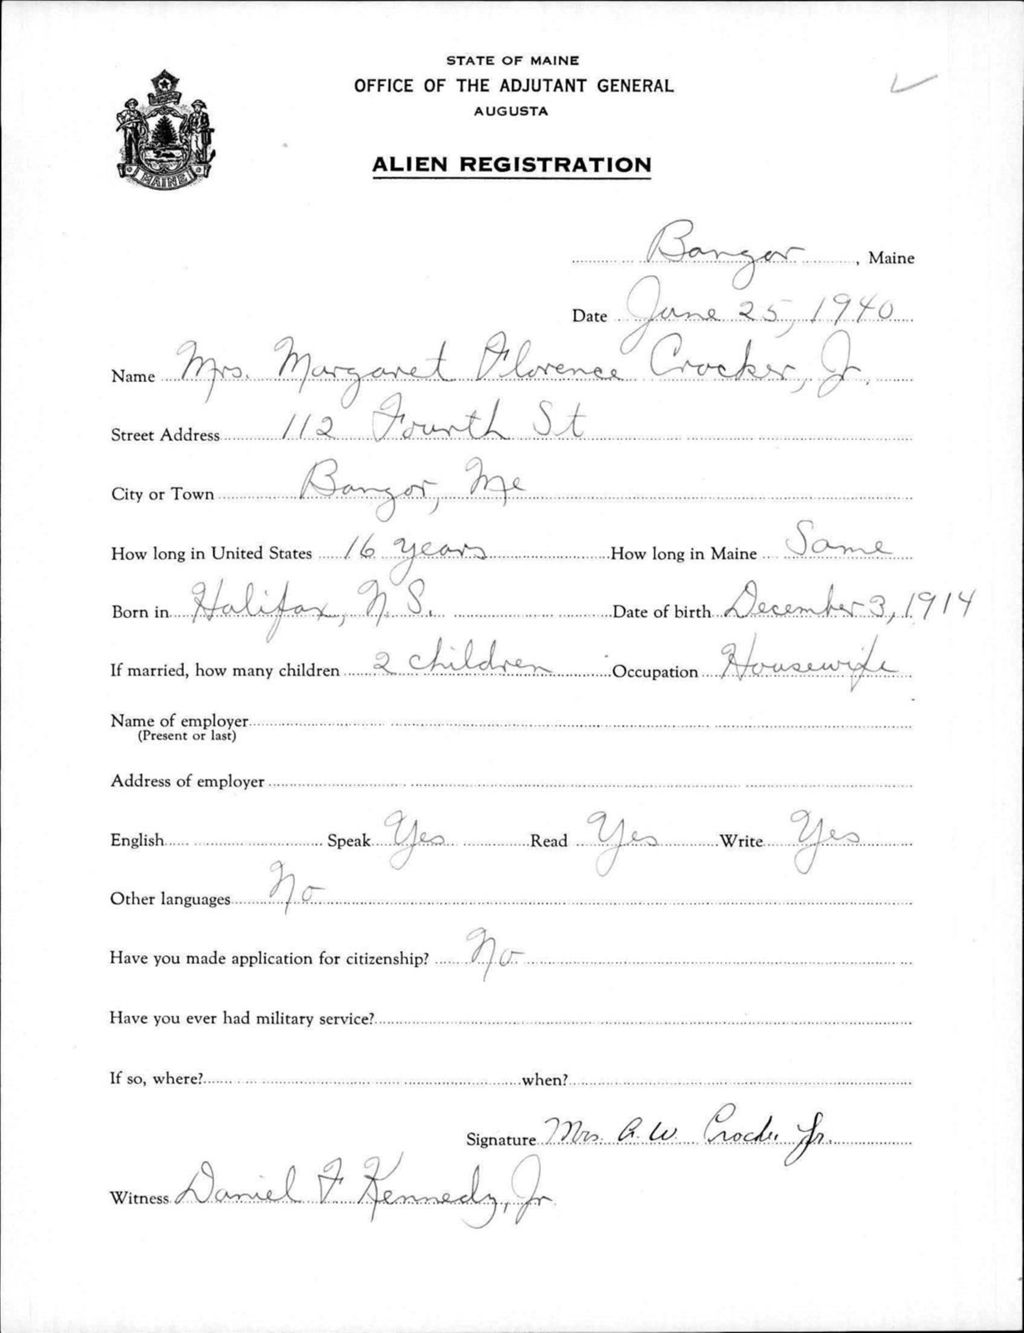 STATE OF MAINE
OFFICE OF THE ADJUTANT GENERAL
AUGUSTA
ALIEN REGISTRATION
MAINE
Bangor, Maine
Date June 25, 1940
Name Mrs. Margaret Florence Crocker, Jr.
Street Address 112 Fourth St
City or Town Bangor, Me
How long in United States 16 years How long in Maine Same
Born in Halifax, N.S. Date of birth December 3, 1914
If married, how many children 2 children Occupation Housewife
Name of employer
(Present or last)
Address of employer
English Speak Yes Read Yes Write Yes
Other languages No
Have you made application for citizenship? No
Have you ever had military service?
If so, where? when?
Signature Mrs. A. W. Crocker Jr.
Witness Daniel F Kennedy, Jr